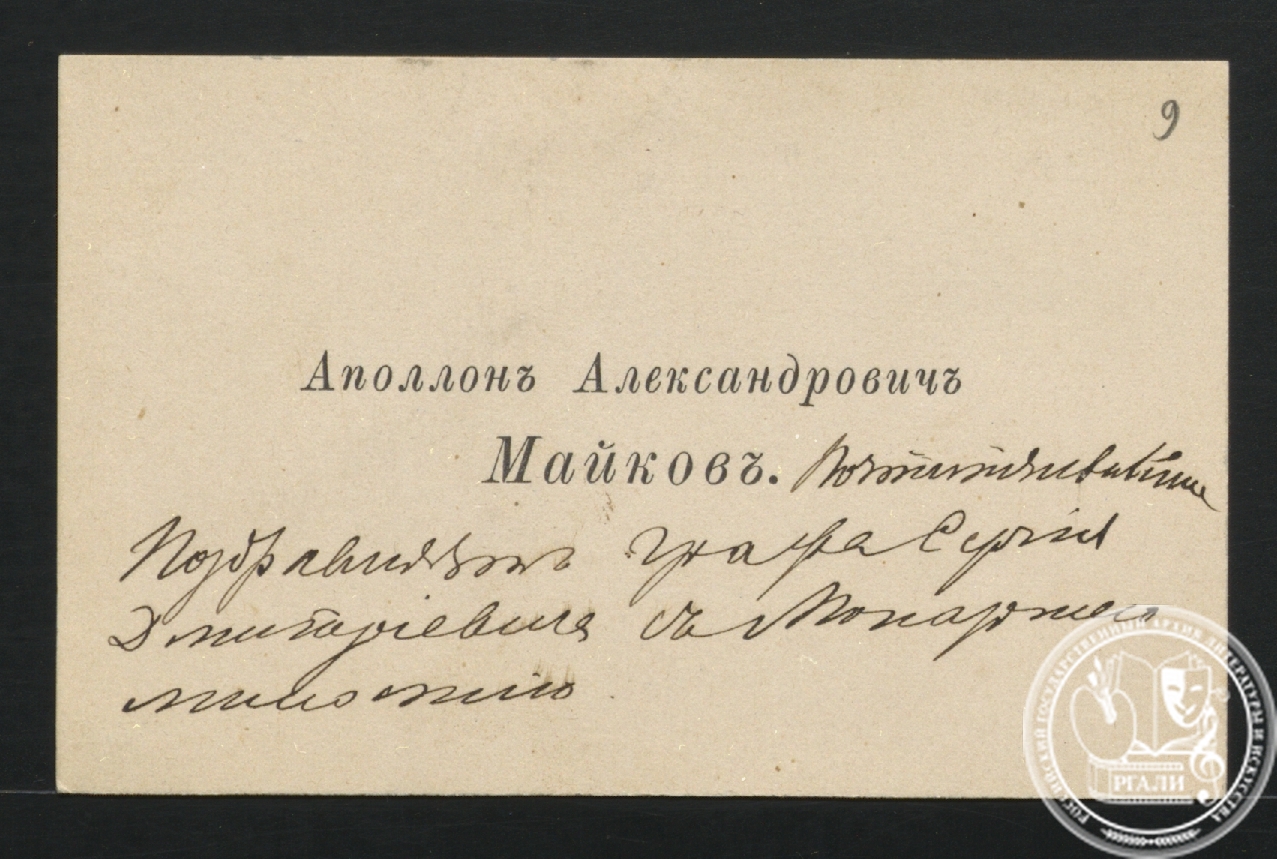 9
Аполлонъ Александровичъ
Майковъ. Почтительнѣйше
Поздравляетъ графа Сергія
Дмитріевича съ Монаршею
милостію.
РОССИЙСКИЙ ГОСУДАРСТВЕННЫЙ АРХИВ ЛИТЕРАТУРЫ И ИСКУССТВА
РГАЛИ